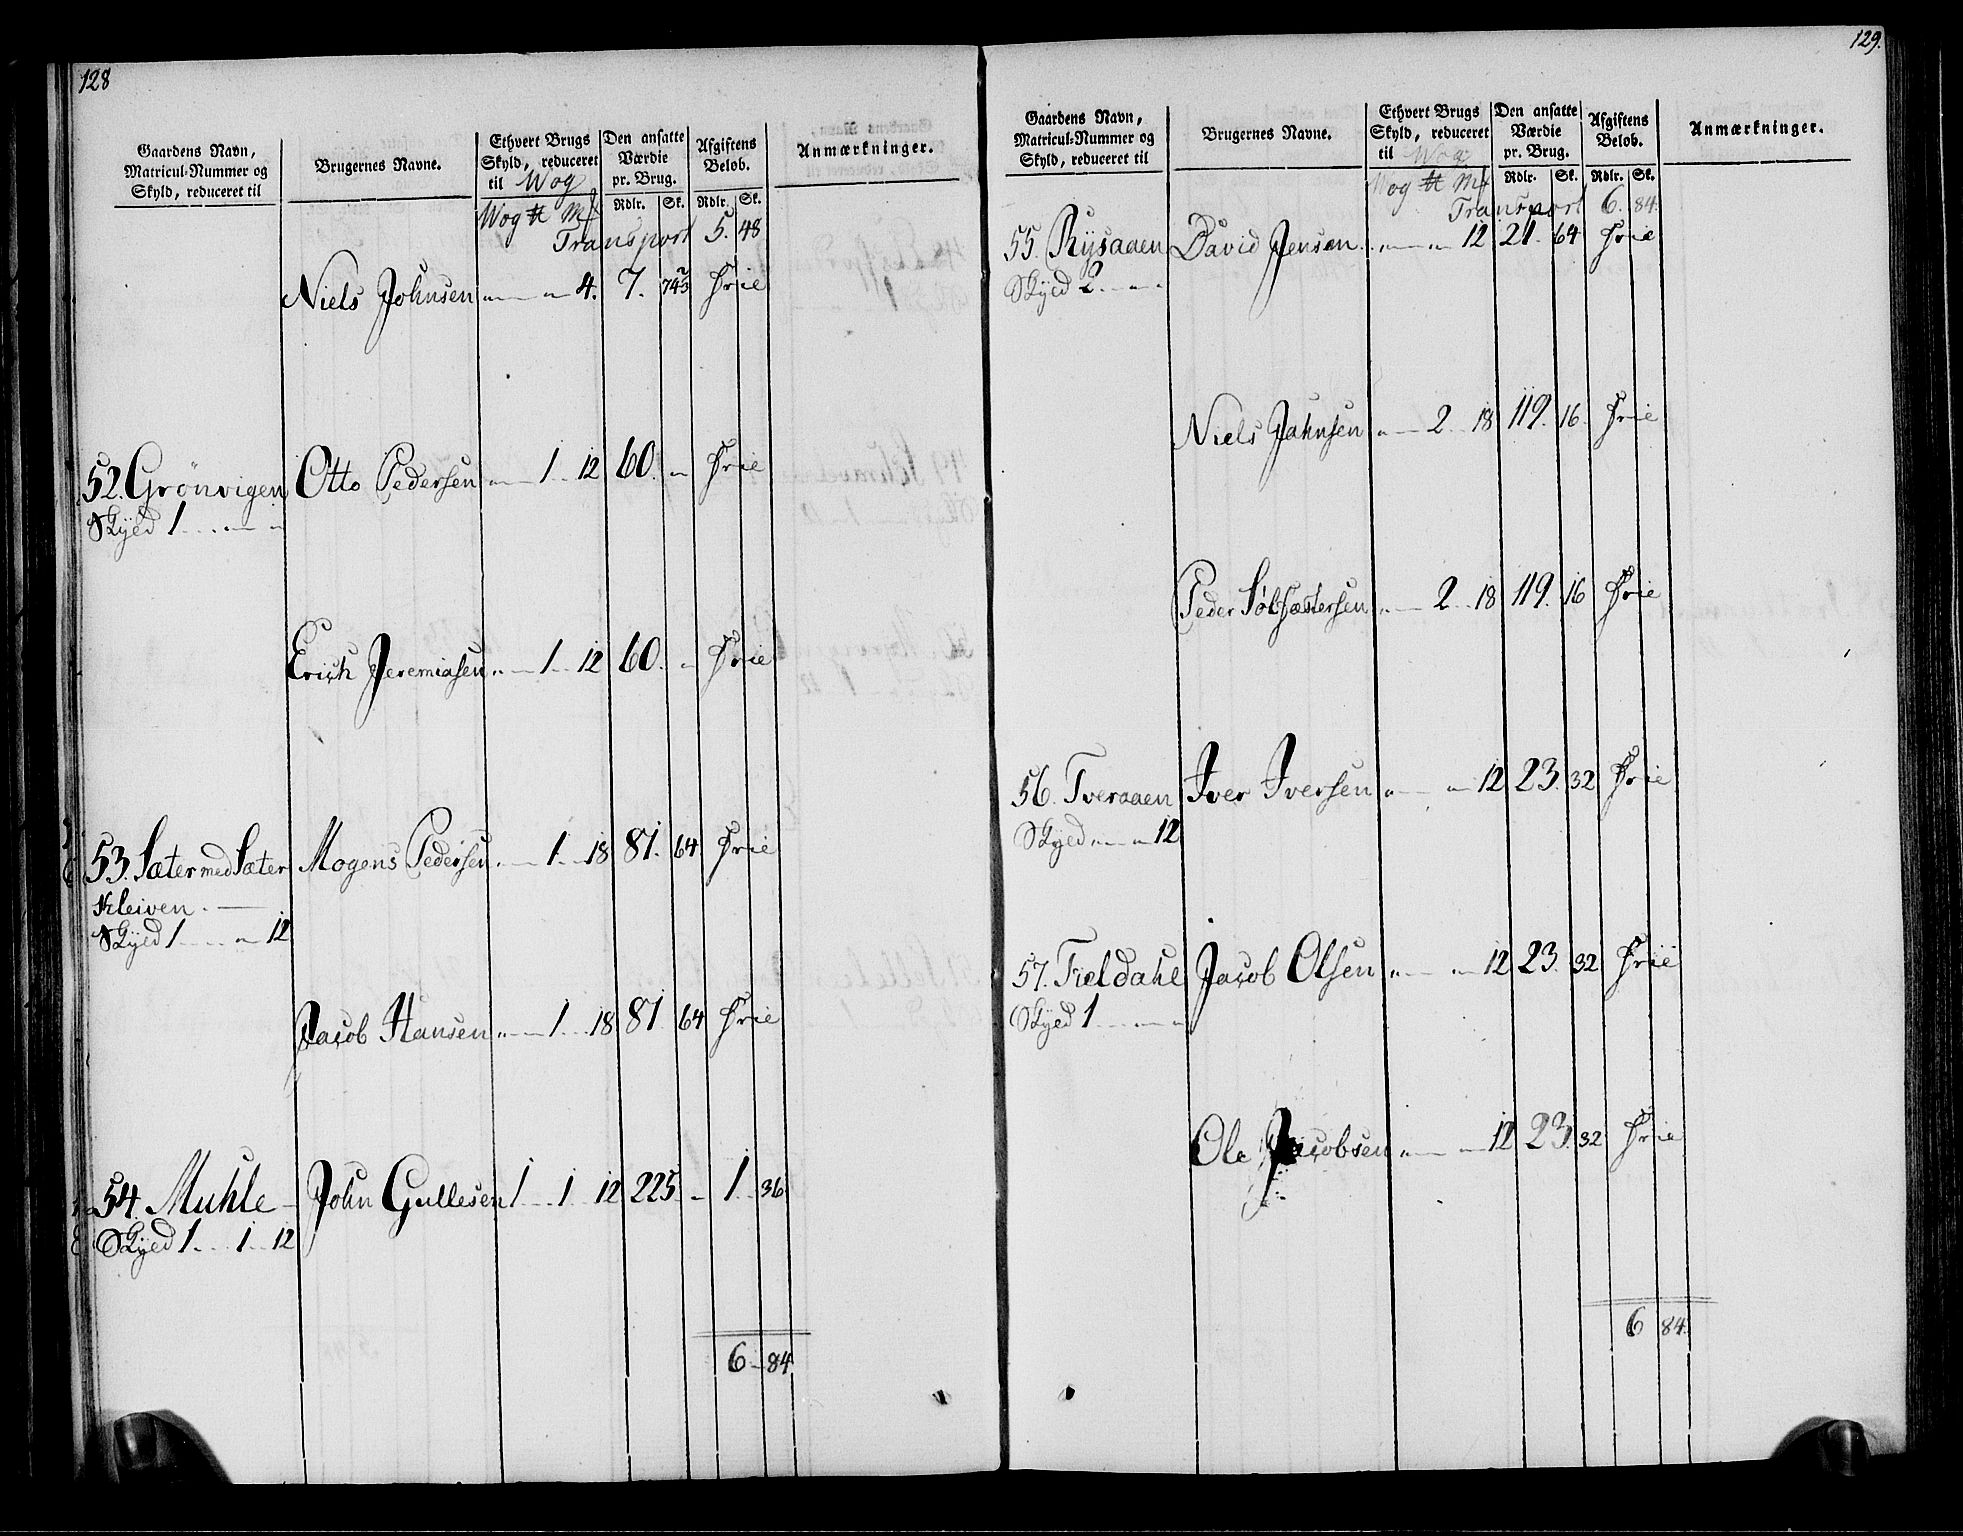 128
Gaardens Navn, Matricul-Nummer og Skyld, reduceret til | Brugernes Navne. | Ethvert Brugs Skyld, reduceret til Wog | Den ansatte Værdie pr. Brug. | Afgiftens Beløb. | Anmærkninger.
Wog ℔ Mk | Rdlr. | Sk. | Rdlr. | Sk.
Transport 5. 48
Niels Johnsen „ — „ 4. 7. 74⅔ Frie
52. Grönvigen Otto Pedersen „ — 1 .. 12 60. „ Frie
Skyld 1 . . „ — „
Erich Jeremiasen „ — 1 .. 12 60. „ Frie
53. Sæter med Sæter Mogens Pedersen „ — 1 .. 18 81. 64 Frie
Kleiven . —
Skyld 1 . . . „ 12
Jacob Hansen „ — 1 .. 18 81 64 Frie
54. Muhle — John Gullesen 1 .. 1 .. 12 225 „ 1 .. 36.
Skyld 1 . . . 1 . . 12
6 — 84.
129.
Gaardens Navn, Matricul-Nummer og Skyld, reduceret til | Brugernes Navne. | Ethvert Brugs Skyld, reduceret til Wog | Den ansatte Værdie pr. Brug. | Afgiftens Beløb. | Anmærkninger.
Wog ℔ Mk | Rdlr. | Sk. | Rdlr. | Sk.
Transport 6. 84.
55. Rysaaen David Jensen . „ — „ 12 21. 64 Frie
Skyld 2 . . „ — „
Niels Johnsen „ — 2 .. 18 119. 16. Frie
Peder „ — 2 .. 18 119. 16 Frie
56. Tveraaen Iver Iversen „ — „ 12 23. 32 Frie
Skyld „ — „ 12
57. Fieldahl Jacob Olsen „ — „ 12 23. 32 Frie
Skyld 1 . . „ — „
Ole Jacobsen „ — „ 12 23. 32 Frie
6 84.